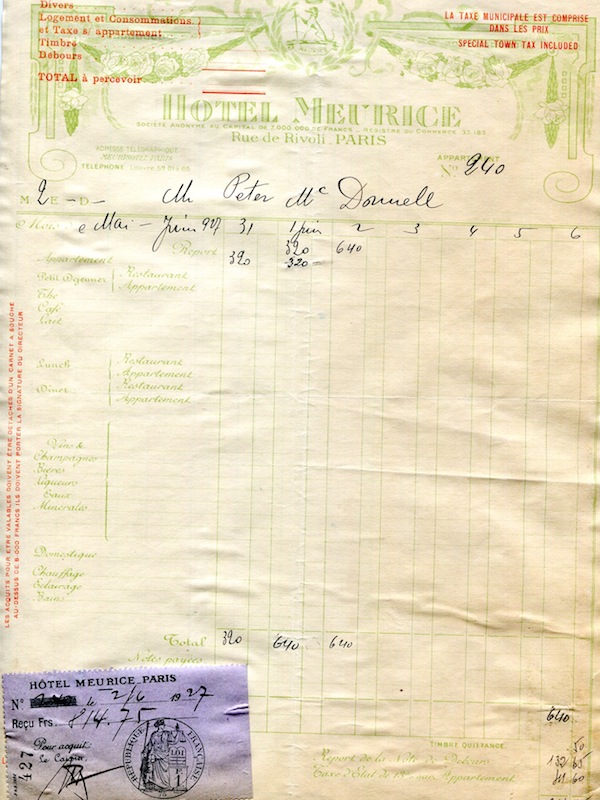 Divers
Logement et Consommations.
et Taxe s/ appartement
Timbre
Débours
TOTAL à percevoir
LA TAXE MUNICIPALE EST COMPRISE
DANS LES PRIX
SPECIAL TOWN TAX INCLUDED
HOTEL MEURICE
SOCIÉTÉ ANONYME AU CAPITAL DE 7.000.000 DE FRANCS _ REGISTRE DU COMMERCE 33.183
Rue de Rivoli. PARIS
ADRESSE TÉLÉGRAPHIQUE
MEURIHOTEL PARIS
TELEPHONE
APPARTEMENT
No 240
M 2 - E - D - Mr Peter Mc Donnell
Mois de Mai - Juin 927 31 1 juin 2 3 4 5 6
Report 320 640
Appartement 320 320
Petit Déjeuner Restaurant
Appartement
Thé
Café
Lait
Lunch Restaurant
Appartement
Diner Restaurant
Appartement
Vins &
Champagnes
Bières
Liqueurs
Eaux
Minérales
Domestique
Chauffage
Eclairage
Bains
Total 320 640 640
Notes payées
640
TIMBRE QUITTANCE 50
Report de la Note de Debours 132 65
Taxe d'Etat de 13% sur Appartement 41 60
LES ACQUITS POUR ÊTRE VALABLES DOIVENT ÊTRE DÉTACHÉS D'UN CARNET A SOUCHE
AU-DESSUS DE 5.000 FRANCS ILS DOIVENT PORTER LA SIGNATURE DU DIRECTEUR
HÔTEL MEURICE_PARIS
N° le 2/6 1927
Reçu Frs. 814.75
Pour acquit
Le Caissier
427
REPUBLIQUE FRANÇAISE
LOI